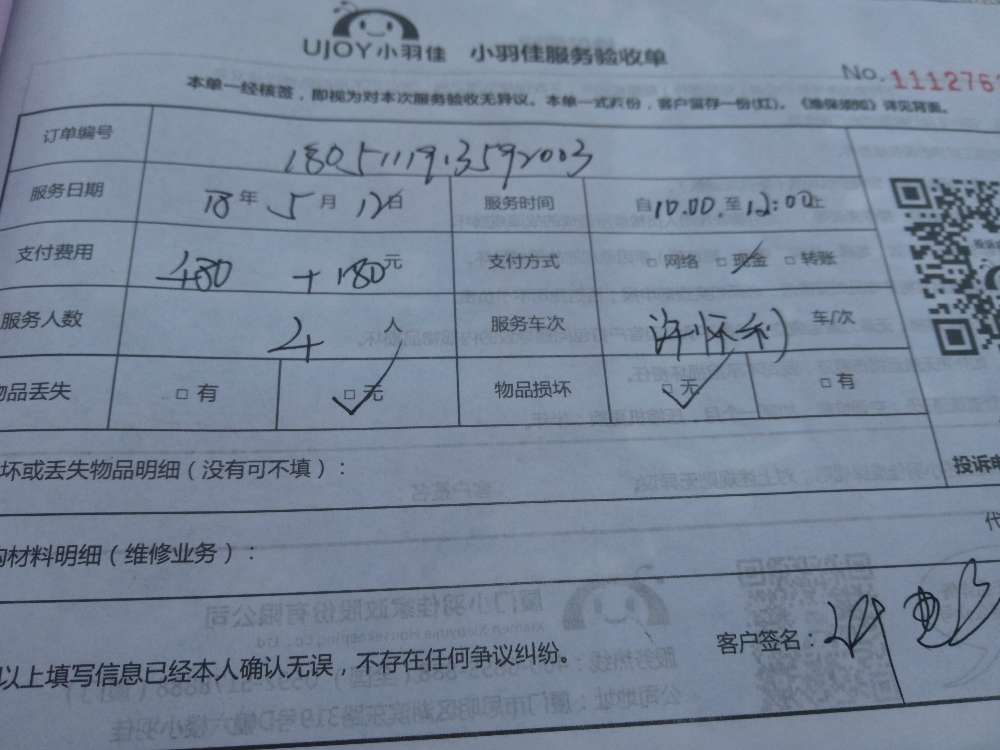 UJOY小羽佳 小羽佳服务验收单
No.111276
本单一经核签，即视为对本次服务验收无异议。本单一式两份，客户留存一份(红)。《维保须知》详见背面。
订单编号 180511913592003
服务日期 18年 5月 12日 服务时间 自10.00.至12:00止
支付费用 480 +180元 支付方式 □网络 □现金 □转账
服务人数 4 人 服务车次 车/次
物品丢失 □有 □无 物品损坏 □无 □有
坏或丢失物品明细（没有可不填）：
投诉电
购材料明细（维修业务）：
以上填写信息已经本人确认无误，不存在任何争议纠纷。 客户签名：